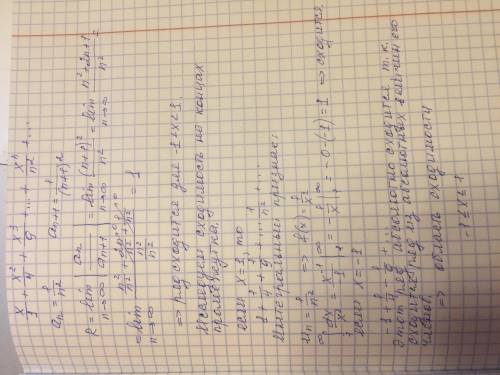 x/1 + x²/4 + x³/9 + ... + xⁿ/n² + ...
aₙ = 1/n²   aₙ₊₁ = 1/(n+1)²
R = lim n→∞ |aₙ/aₙ₊₁| = lim n→∞ (n+1)²/n² = lim n→∞ (n²+2n+1)/n² =
= lim n→∞ (n²/n² + 2n/n² + 1/n²)/(n²/n²) = 1
⇒ ряд сходится для -1<x<1.
Исследуем сходимость на концах
промежутка,
если x=1, то
1 + 1/4 + 1/9 + ... + 1/n² + ...
Интегральный признак:
Uₙ = 1/n² ⇒ f(x) = 1/x²
∫₁^∞ dx/x² = x⁻¹/-1 |₁^∞ = -1/x |₁^∞ = -0-(-1) = 1 ⇒ сходится.
если x=-1
-1 + 1/4 - 1/9 + ...
Этот ряд абсолютно сходится т.к.
сходится ряд из абсолютных величин его
членов.
⇒ область сходимости
-1 ≤ x ≤ 1